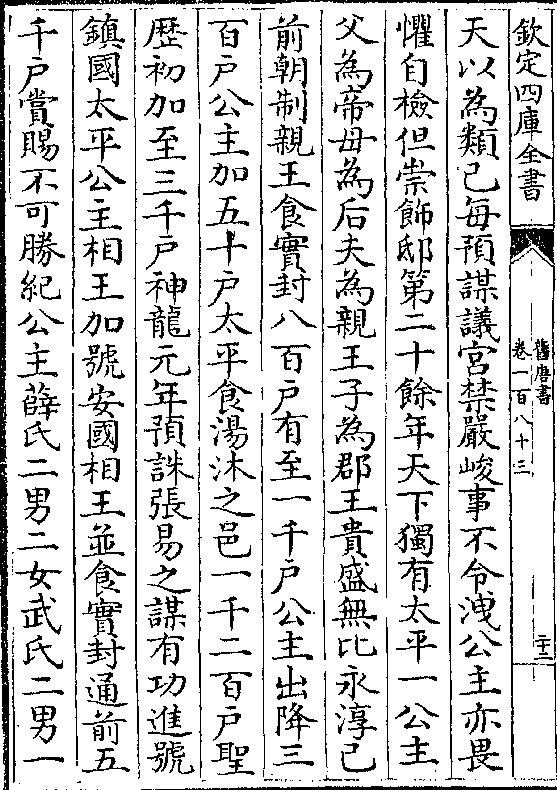 欽定四庫全書
舊唐書
卷一百八十三
二十二
天以為類己每預謀議宮禁嚴峻事不令洩公主亦畏
懼自檢但崇飾邸第二十餘年天下獨有太平一公主
父為帝母為后夫為親王子為郡王貴盛無比永淳已
前朝制親王食實封八百戶有至一千戶公主出降三
百戶公主加五十戶太平食湯沐之邑一千二百戶聖
歴初加至三千戶神龍元年預誅張易之謀有功進號
鎮國太平公主相王加號安國相王並食實封通前五
千戶賞賜不可勝紀公主薛氏二男二女武氏二男一